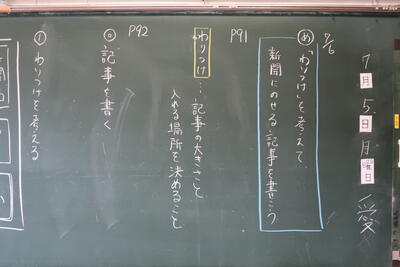 7月5日月曜日 愛
7/6
め 「わりつけ」を考えて、
新聞にのせる記事を書こう
P91
わりつけ…記事の大きさと
入れる場所を決めること
P92
◎記事を書く
①わりつけを考える